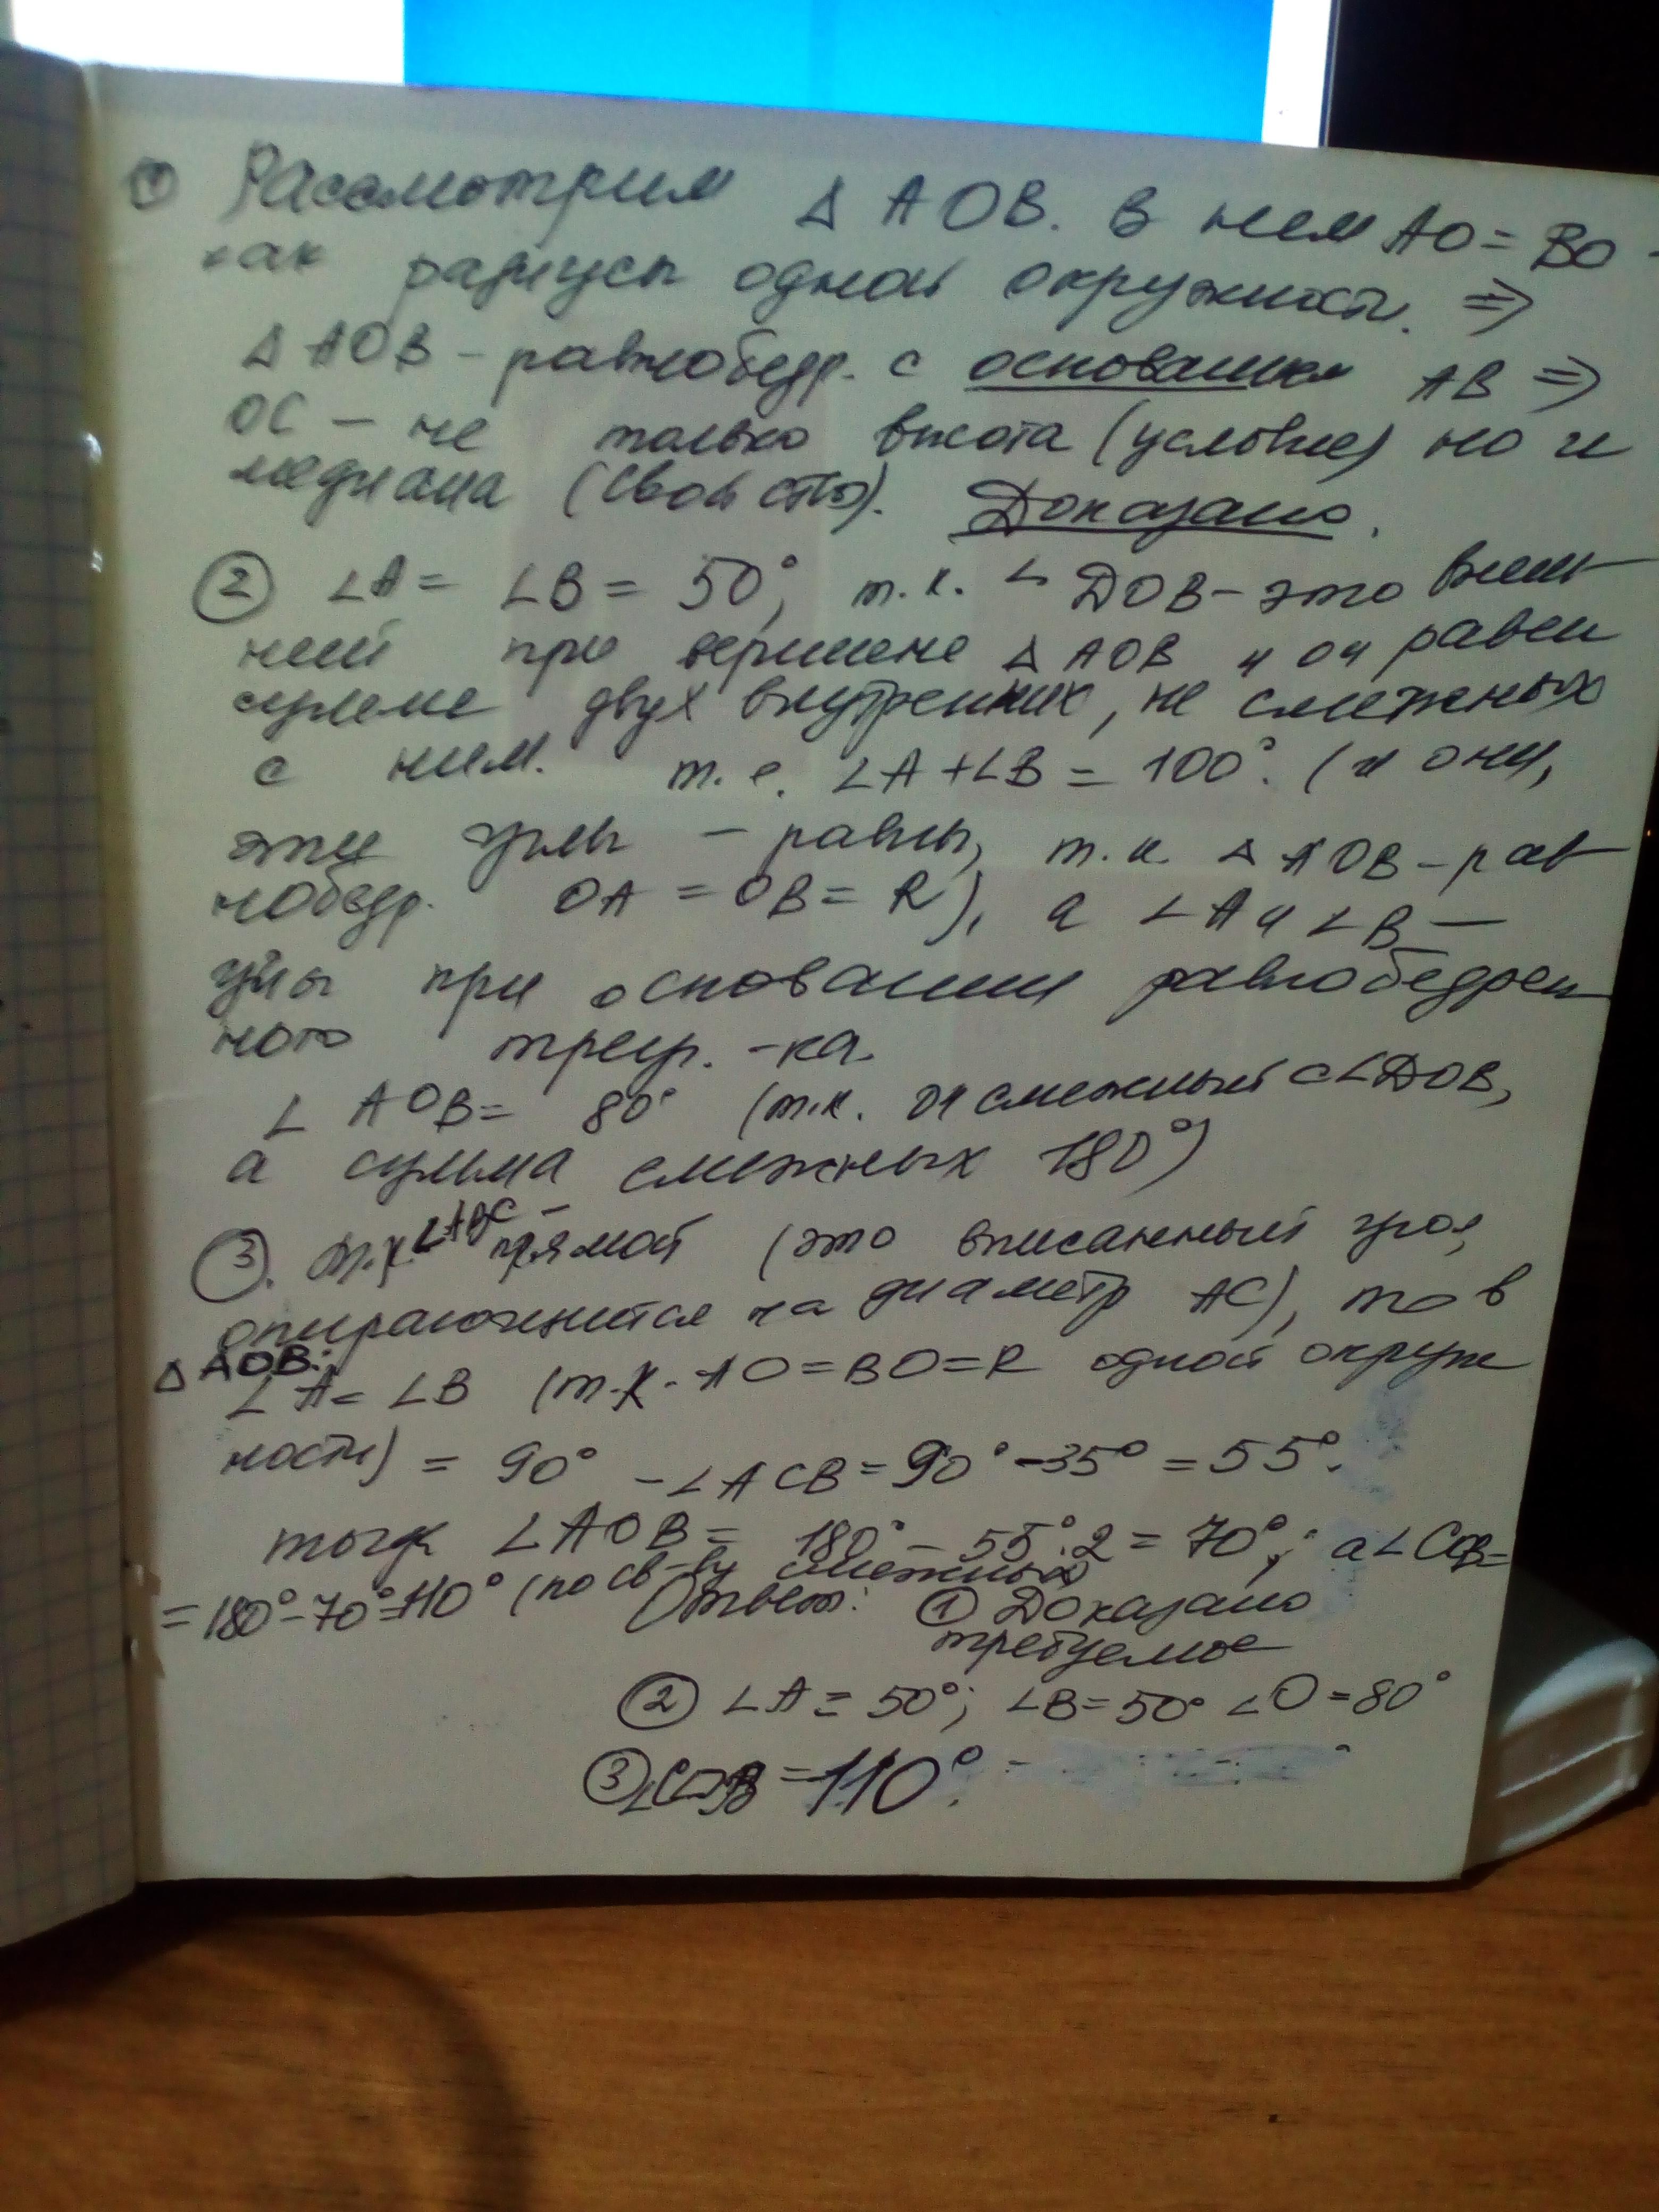 ① Рассмотрим Δ AOB. В нем AO = BO -
как радиусы одной окружности. ⇒
Δ AOB - равнобедр. с основанием AB ⇒
OC - не только высота (условие) но и
медиана (свойство). Доказано.
② ∠A = ∠B = 50°, т.к. ∠ DOB - это внеш-
ний при вершине Δ AOB и он равен
сумме двух внутренних, не смежных
с ним. т.е. ∠A + ∠B = 100°. (и они,
эти углы - равны, т.к. Δ AOB - рав
нобедр. OA = OB = R), а ∠A и ∠B -
углы при основании равнобедрен
ного треуг. -ка.
∠ AOB = 80° (т.к. он смежный с ∠DOB,
а сумма смежных 180°)
③. т.к. ∠ABC - прямой (это вписанный угол,
опирающийся на диаметр AC), то в
Δ AOB:
∠A = ∠B (т.к. AO = BO = R одной окруж
ности) = 90° - ∠ACB = 90° - 35° = 55°.
тогда ∠AOB = 180° - 55°·2 = 70°; а ∠COB =
= 180° - 70° = 110° (по св-ву смежных
Ответ: ① Доказано
требуемое
② ∠A = 50°; ∠B = 50° ∠O = 80°
③ ∠COB = 110°.